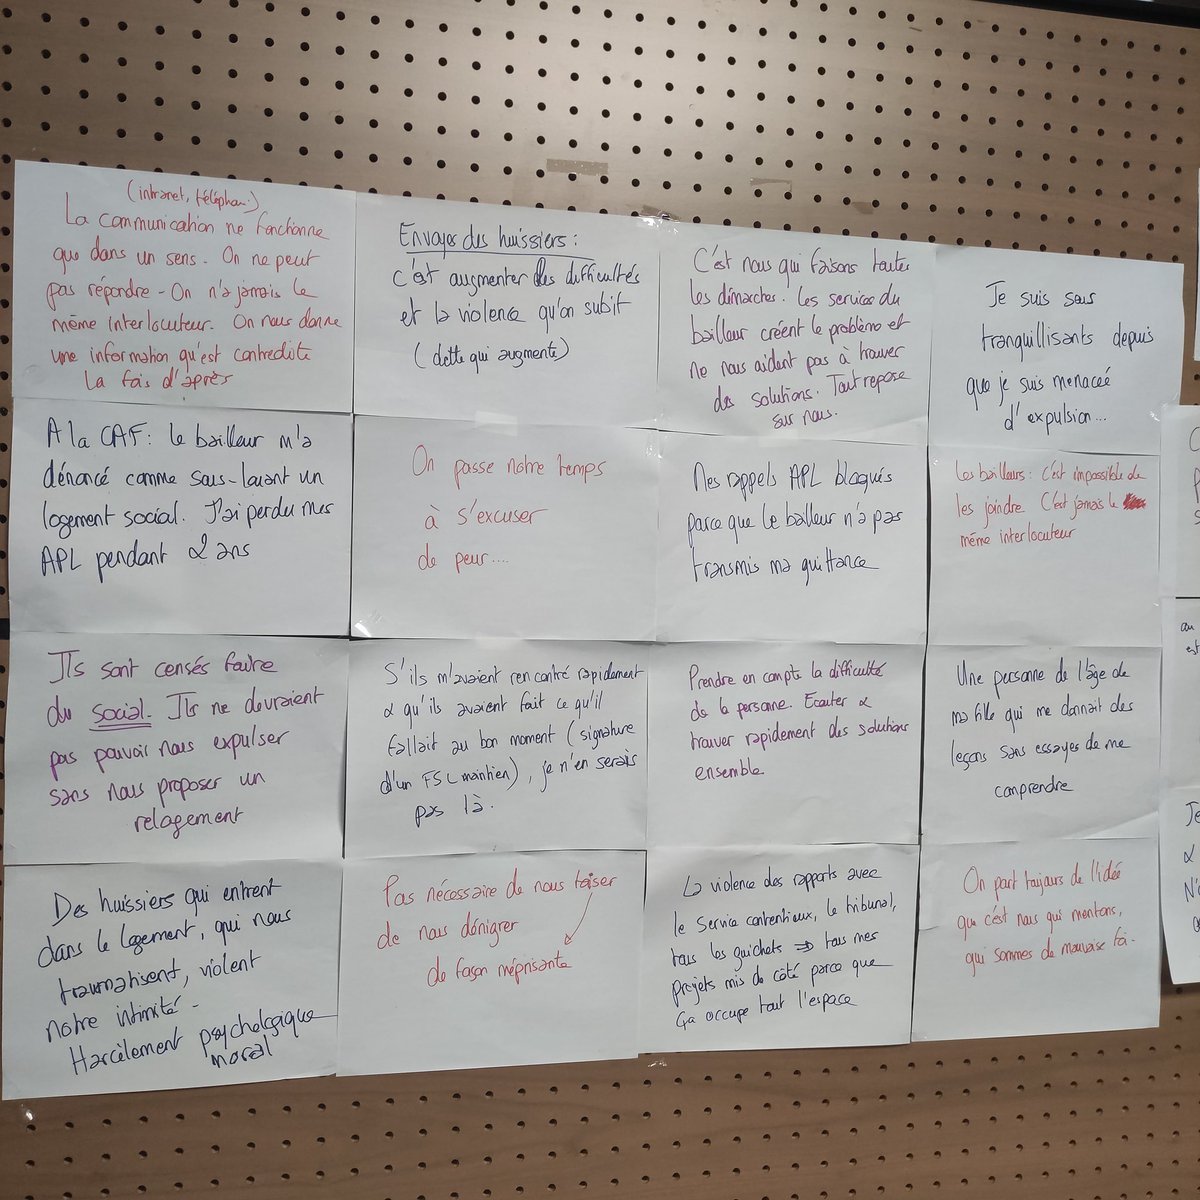 (intranet, téléphon.)
La communication ne fonctionne
que dans un sens. On ne peut
pas répondre - On n'a jamais le
même interlocuteur. On nous donne
une information qu'est contredite
la fois d'après
Envoyer des huissiers :
c'est augmenter les difficultés
et la violence qu'on subit
(dette qui augmente)
C'est nous qui faisons toutes
les démarches. Les services du
bailleur créent le problème et
ne nous aident pas à trouver
des solutions. Tout repose
sur nous.
Je suis sous
tranquillisants depuis
que je suis menacée
d'expulsion...
A la CAF : le bailleur m'a
dénoncé comme sous-louant un
logement social. J'ai perdu mes
APL pendant 2 ans
On passe notre temps
à s'excuser
de peur....
Mes rappels APL bloqués
parce que le bailleur n'a pas
transmis ma quittance
Les bailleurs : C'est impossible de
les joindre. C'est jamais le
même interlocuteur
Ils sont censés faire
du social. Ils ne devraient
pas pouvoir nous expulser
sans nous proposer un
relogement
S'ils m'avaient rencontré rapidement
& qu'ils avaient fait ce qu'il
fallait au bon moment (signature
d'un FSL maintien), je n'en serais
pas là.
Prendre en compte la difficulté
de la personne. Ecouter &
trouver rapidement des solutions
ensemble
Une personne de l'âge de
ma fille qui me donnait des
leçons sans essayer de me
comprendre
Des huissiers qui entrent
dans le logement, qui nous
traumatisent, violent
notre intimité -
Harcèlement psychologique
moral
Pas nécessaire de nous toiser
de nous dénigrer
de façon méprisante
La violence des rapports avec
le service contentieux, le tribunal,
tous les guichets => tous mes
projets mis de côté parce que
ça occupe tout l'espace
On part toujours de l'idée
que c'est nous qui mentons,
qui sommes de mauvaise foi.
au
est
Je
&